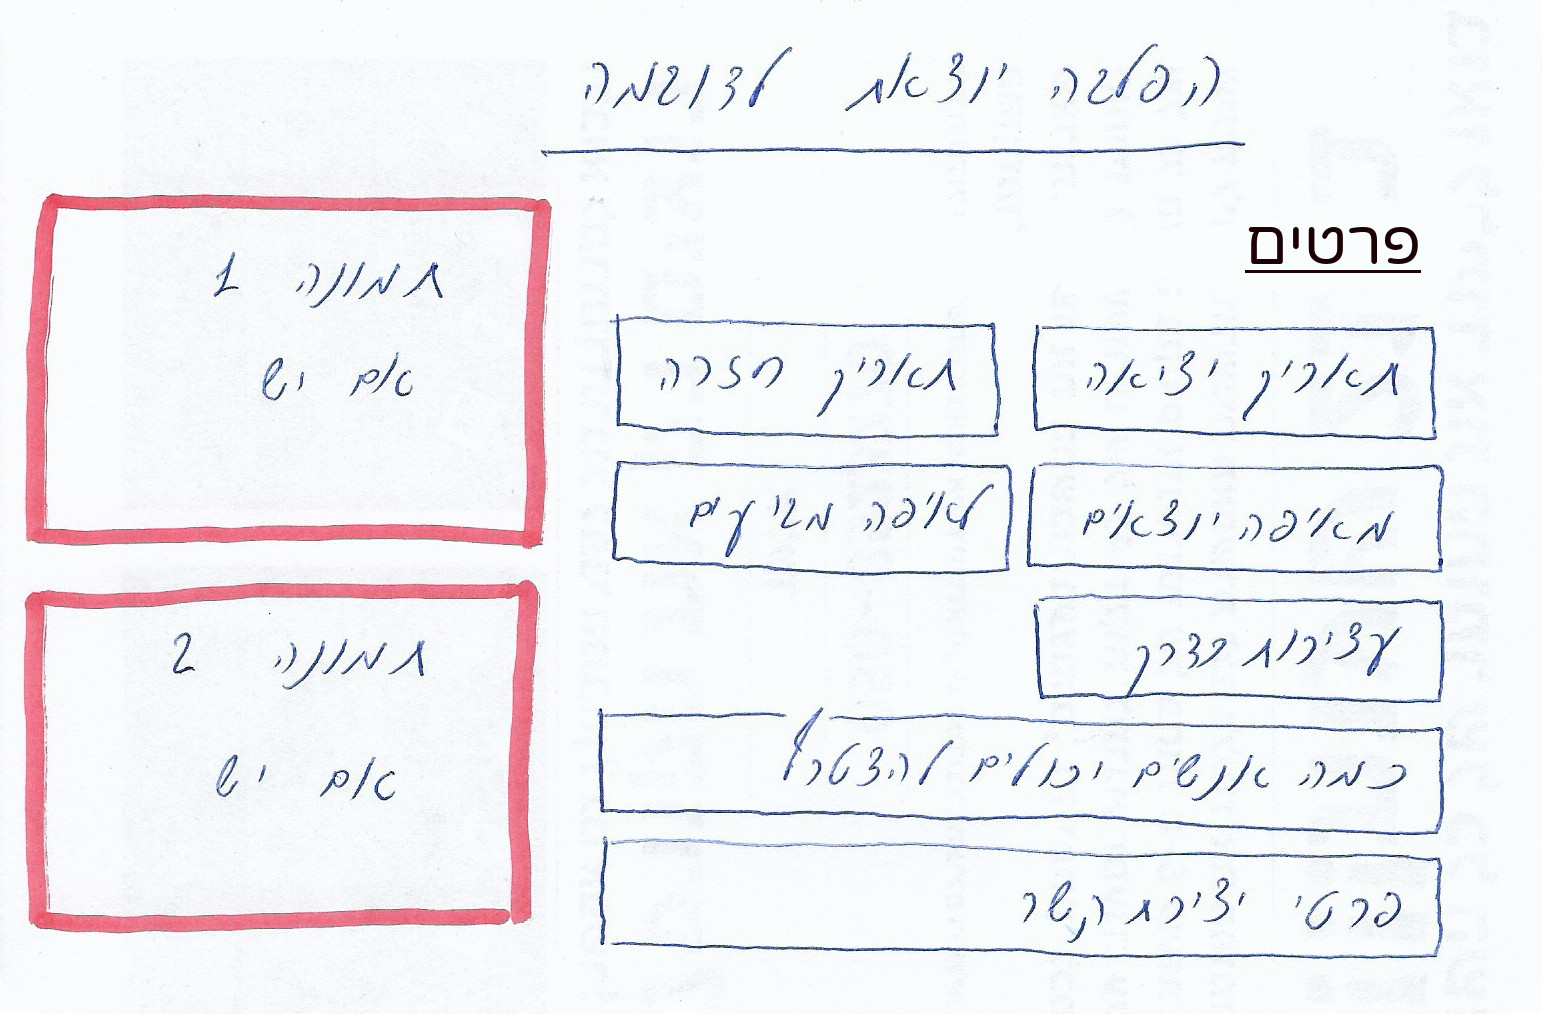 הפלגה יוצאת לדוגמה
פרטים
תאריך יציאה
תאריך חזרה
מאיפה יוצאים
לאיפה מגיעים
עצירות בדרך
כמה אנשים יכולים להצטרף
פרטי יצירת קשר
תמונה 1
אם יש
תמונה 2
אם יש